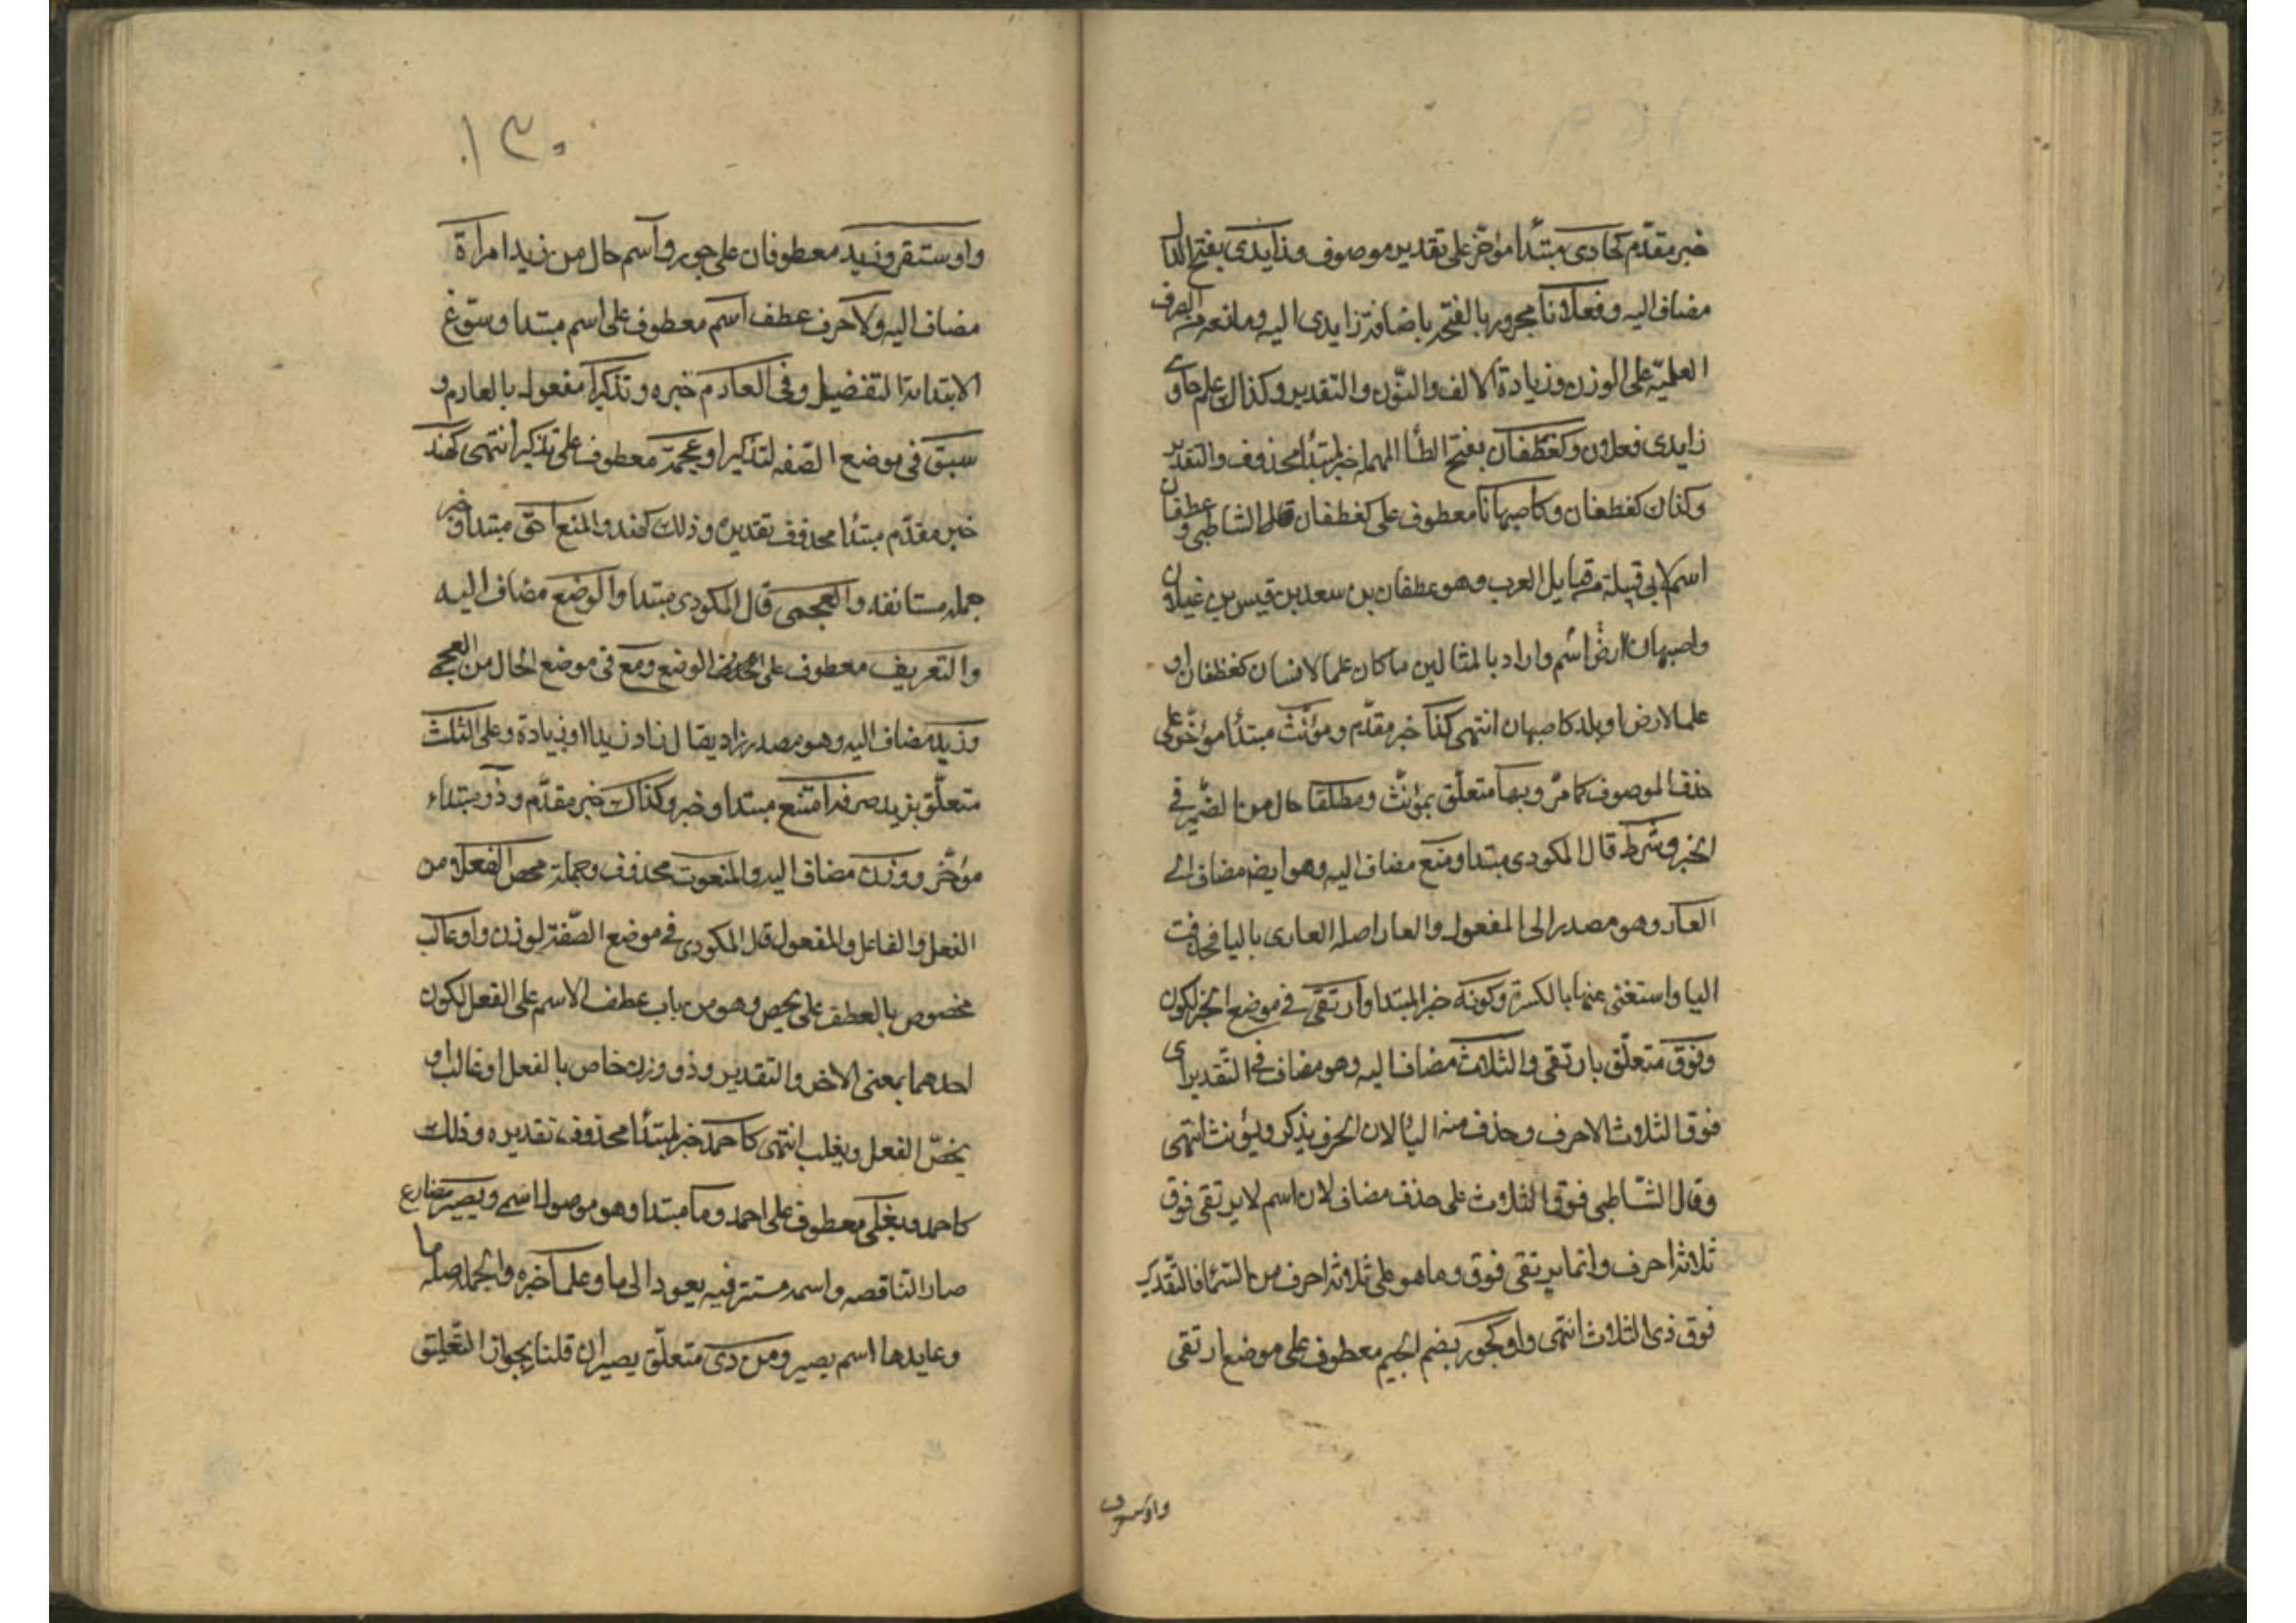 خبر مقدّم كحاوى مبتدأ مؤخّر على تقدير موصوف وزايدى بفتح الدال
مضاف اليه وفعلانا مجرور بالفتحة باضافة زايدى اليه ومانعه من الصرف
العلميّة على الوزن وزيادة الالف والنّون والتقدير وكذاك علم حاوى
زايدى فعلان وكغطفان بفتح الطأ المهملة خبر لمبتدأ محذوف والتقدير
وكذان كغطفان وكاصبهانا معطوف على كغطفان قال الشاطبى وغطفان
اسم لابى قبيلة من قبايل العرب وهو غطفان بن سعد بن قيس بن غيلان
واصبهان ارض اسم واراد بالمثالين ما كان علما لانسان كغطفان او
علما لارض او بلد كاصبهان انتهى كذا خبر مقدّم ومؤنّث مبتدأ مؤخّر على
حذف الموصوف كما مرّ وبها متعلّق بمؤنّث ومطلقا حال من الضّمير فى
الخبر وشرط قال المكودى مبتدا ومنع مضاف اليه وهو ايضه مضاف الى
العار وهو مصدر الى المفعول والعار اصله العارى باليا فحذفت
اليا واستغنى عنها بالكسرة وكونه خبر المبتدا وارتقى فى موضع الخبر لكون
وفوق متعلّق بارتقى والثلاث مضاف اليه وهو مضاف فى التقدير اى
فوق الثلاث الاحرف وحذف منه اليا لان الحرف يذكر ويؤنث انتهى
وقال الشّاطبى فوق الثلاث على حذف مضاف لان اسم لا يرتقى فوق
ثلاثة احرف وانما يرتقى فوق وما هو على ثلاثة احرف من السما فالتّقدير
فوق ذى الثلاث انتهى واو كجور بضم الجيم معطوف على موضع ارتقى
واو سقر
١٣٠
واو سقر وزيد معطوفان على جور واسم حال من زيد امراة
مضاف اليه ولا حرف عطف اسم معطوف على اسم مبتدا وسوّغ
الابتدا به التفضيل وفى العادم خبره وتذكيرا مفعول بالعادم و
سبق فى موضع الصّفه لتذكيرا وعجمة معطوف على تذكيرا انتهى كهند
خبر مقدّم مبتدأ محذوف تقديره وذلك كهند والمنع احقّ مبتدا وخبر
جمله مستانفه والعجمى قال المكودى مبتدا والوضع مضاف اليه
والتعريف معطوف على الوضع ومع فى موضع الحال من العجمى
وزيد مضاف اليه وهو مصدر زاد يقال زاد زيدا وزيادة وعلى الثلث
متعلّق بزيد صرفه امتنع مبتدا وخبر وكذاك خبر مقدّم وذو مبتداء
مؤخّر ووزن مضاف اليه والمنعوت محذوف وجملة يخص الفعلا من
الفعل والفاعل والمفعول قال المكودى فى موضع الصّفة لوزن واو غالب
مخصوص بالعطف على يخص وهو من باب عطف الاسم على الفعل لكون
احدهما بمعنى الاخر والتقدير وذو وزن خاص بالفعل او غالب او
يخصّ الفعل ويغلب انتهى كاحمد خبر لمبتدأ محذوف تقديره وذلك
كاحمد ويعلى معطوف على احمد وما مبتدا وهو موصول اسمى ويصير مضارع
صار الناقصه واسمه مستتر فيه يعود الى ما وعلما خبره والجمله صلة ما
وعايدها اسم يصير ومن ذى متعلّق يصير ان قلنا بجواز التّعليق